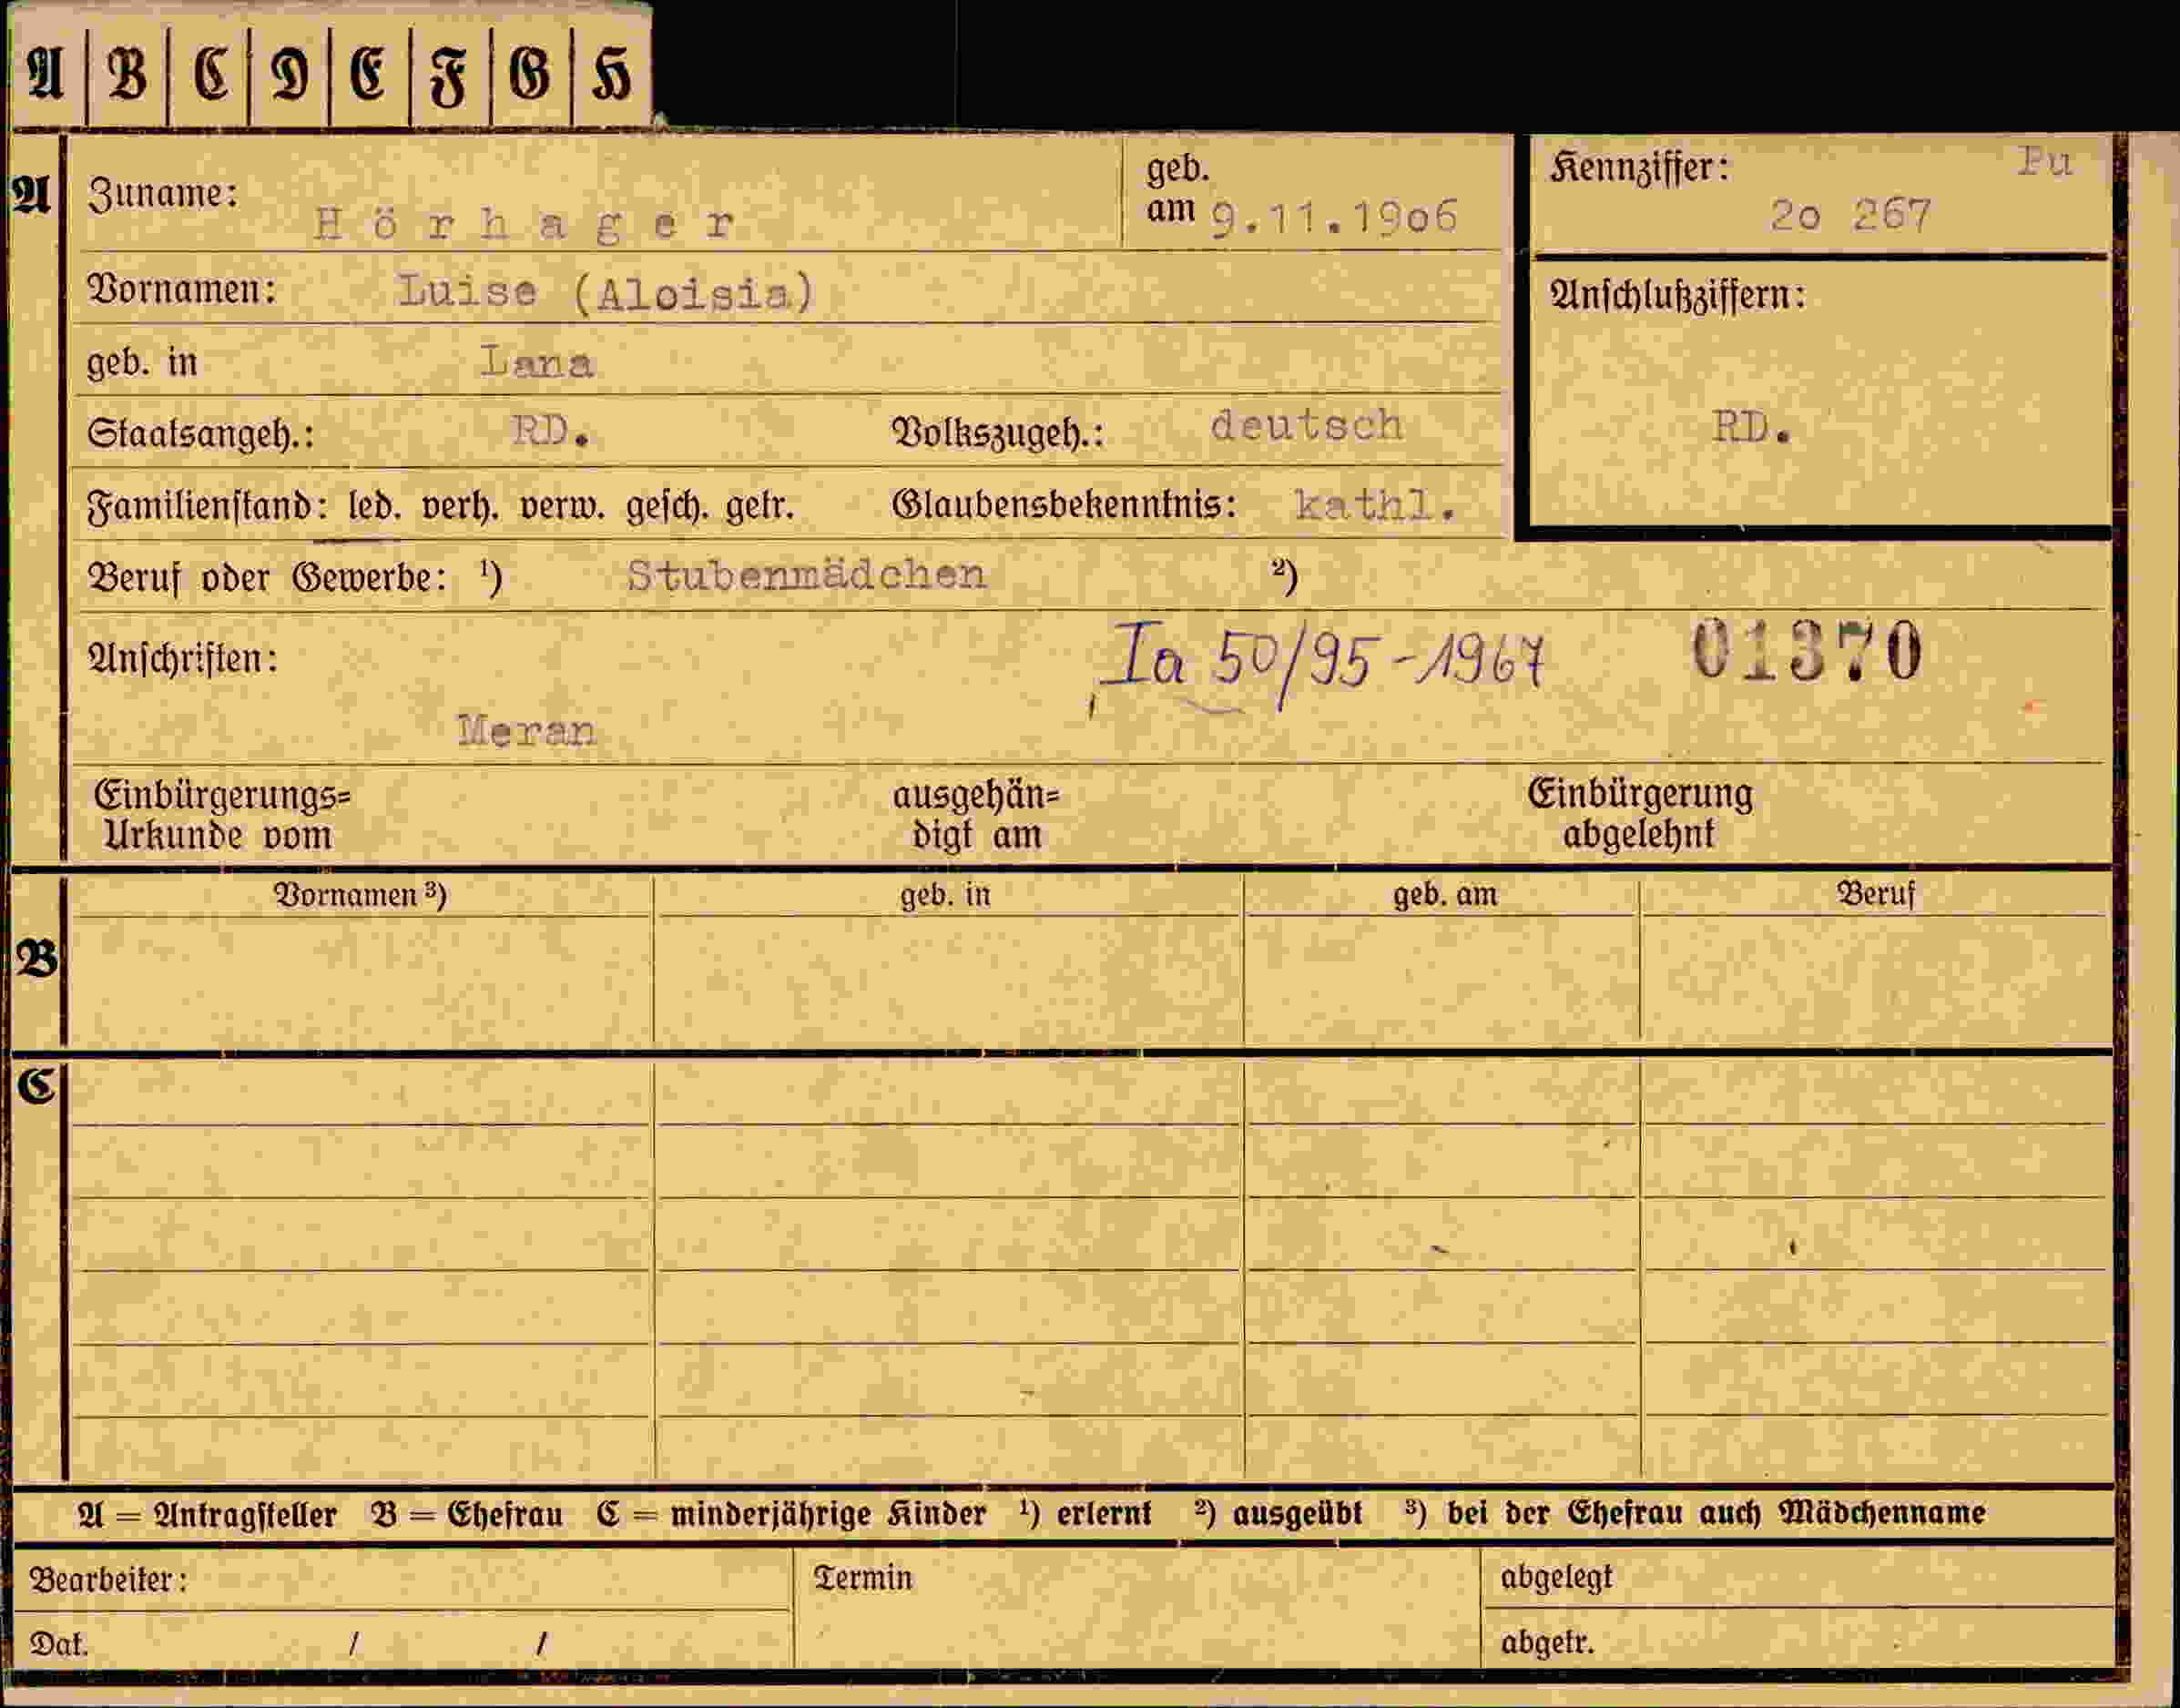 A B C D E F G H
A Zuname: Hörhager geb. am 9.11.1906 Kennziffer: Pu 20 267
Vornamen: Luise (Aloisia) Anschlußziffern:
geb. in Lana
Staatsangeh.: RD. Volkszugeh.: deutsch RD.
Familienstand: led. verh. verw. gesch. getr. Glaubensbekenntnis: kathl.
Beruf oder Gewerbe: ¹) Stubenmädchen ²)
Anschriften: Ia 50/95-1967 01370
Meran
Einbürgerungs= ausgehän= Einbürgerung
Urkunde vom digt am abgelehnt
Vornamen ³) geb. in geb. am Beruf
B
C
A = Antragsteller B = Ehefrau C = minderjährige Kinder ¹) erlernt ²) ausgeübt ³) bei der Ehefrau auch Mädchenname
Bearbeiter: Termin abgelegt
Dat. / / abgetr.